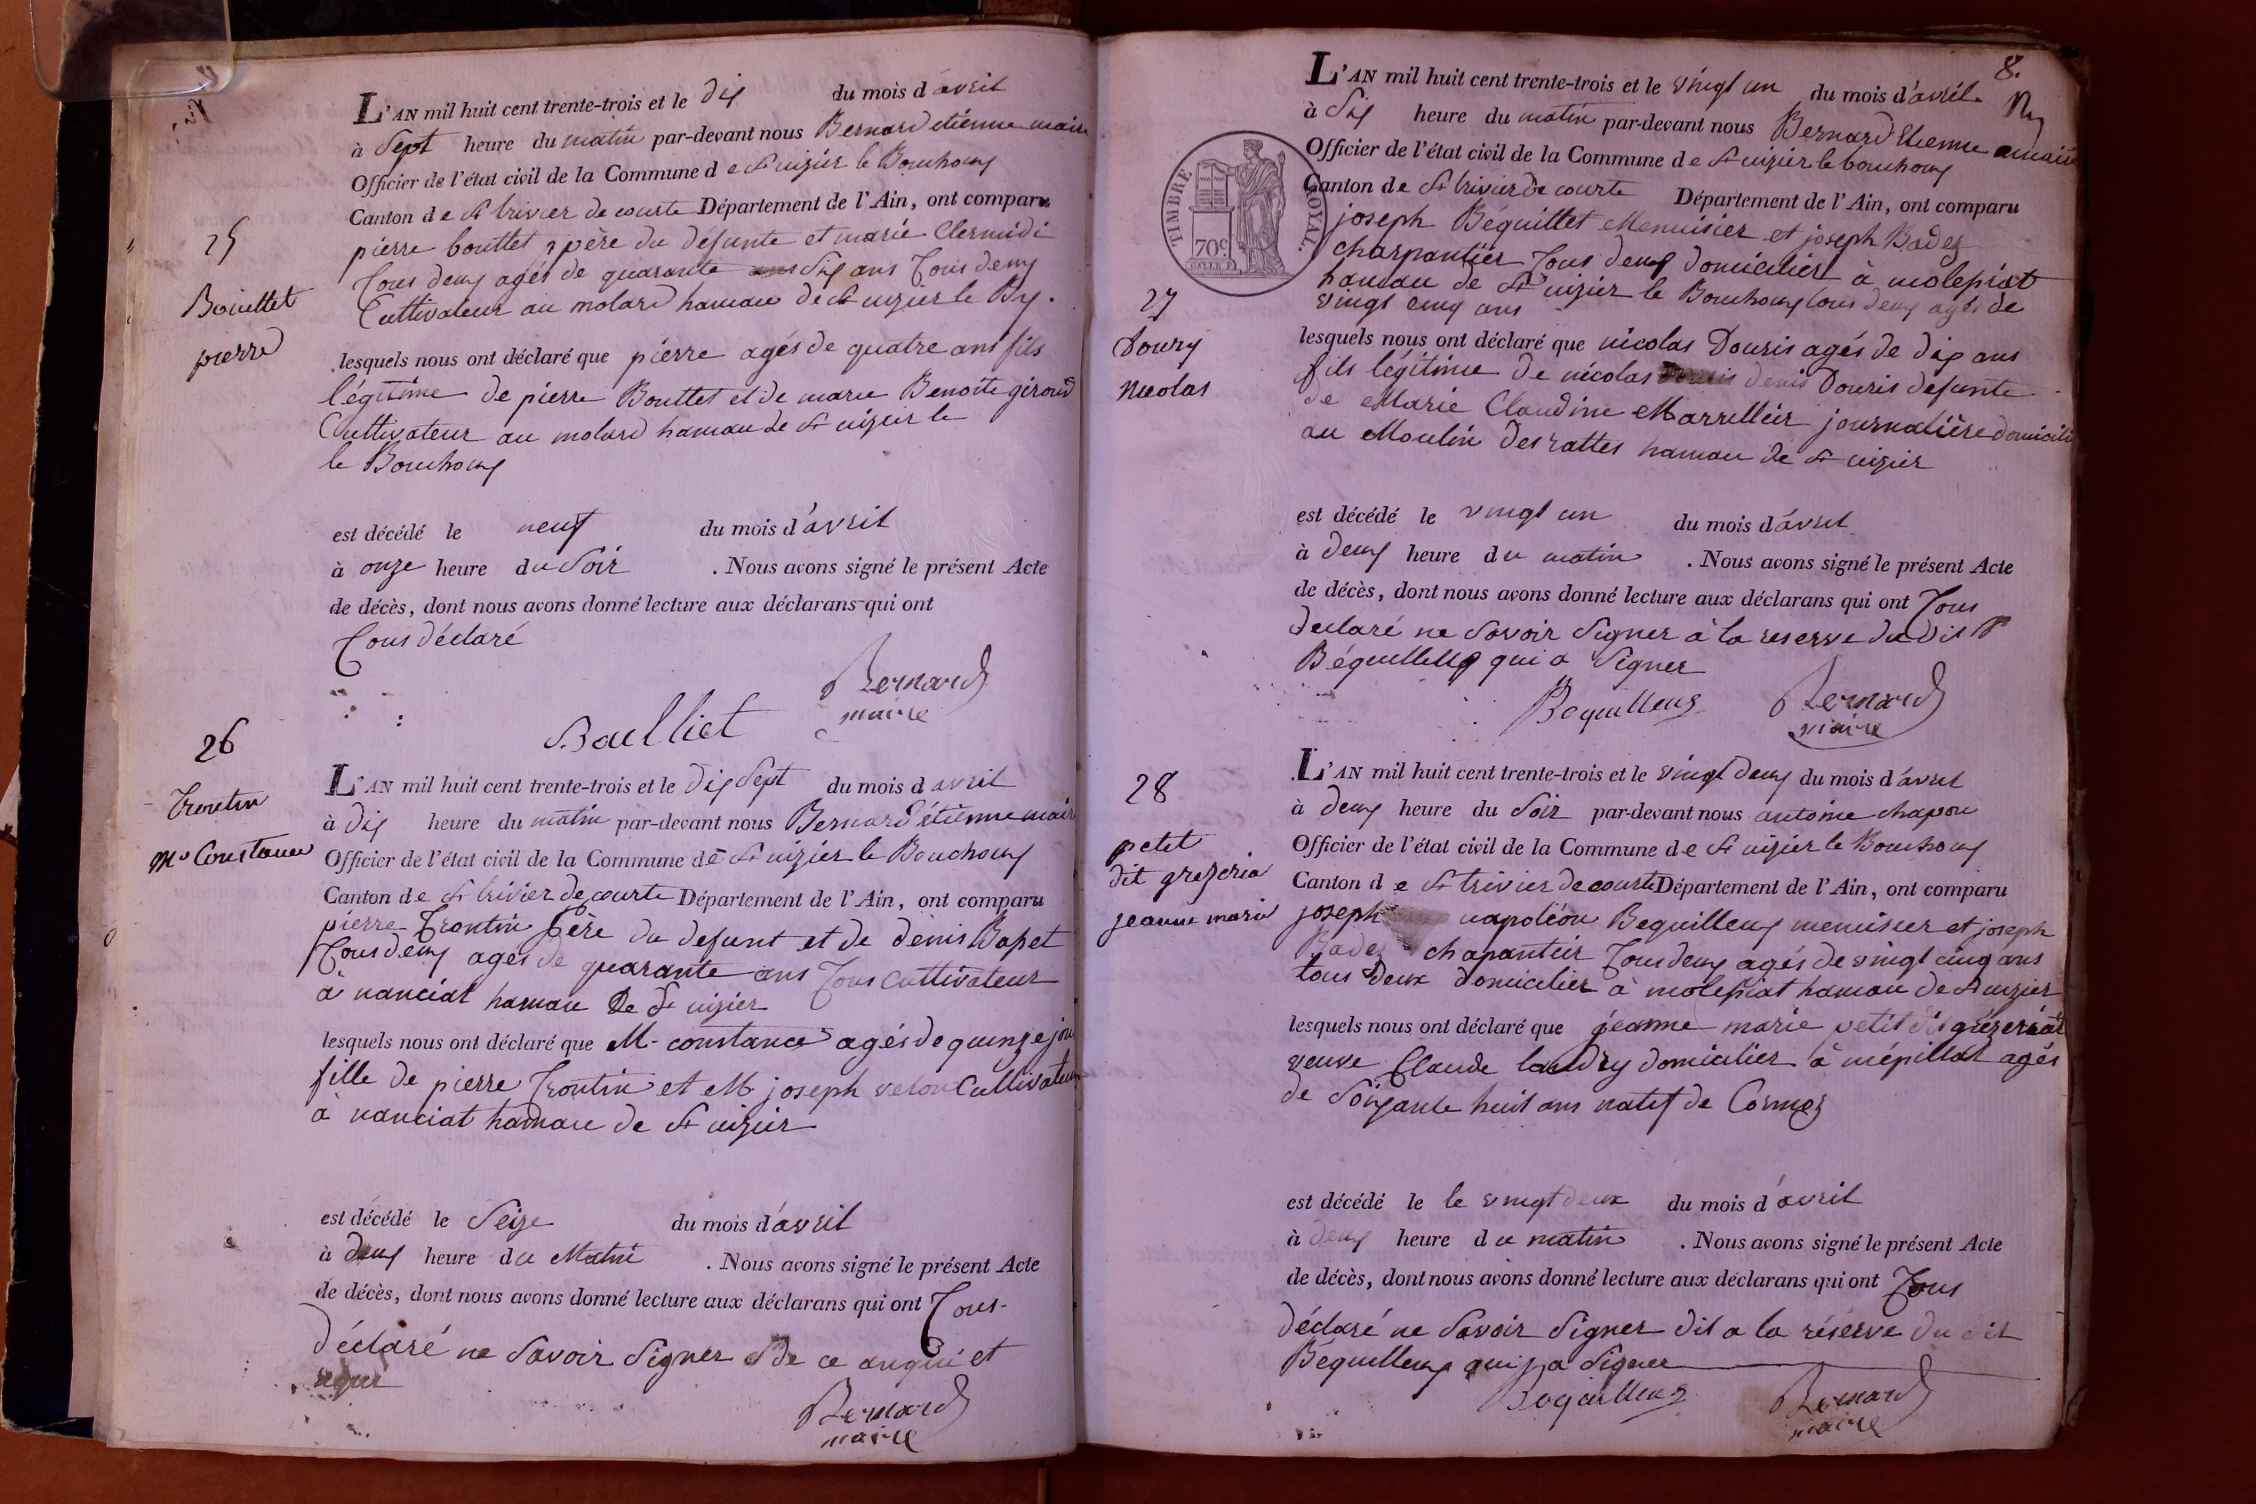 25
Bouillet
pierre
L'AN mil huit cent trente-trois et le dix du mois d'avril
à sept heure du matin par-devant nous Bernard etienne maire
Officier de l'état civil de la Commune de St nizier le Bouchoux
Canton de St trivier de courte Département de l'Ain, ont comparu
pierre bouttet père du défunte et marie Clermidi
tous deux agés de quarante six ans tous deux
Cultivateur au molard hamau de St nizier le Bx.
lesquels nous ont déclaré que pierre agés de quatre ans fils
légitime de pierre Bouttet et de marie Benoite giroud
Cultivateur au molard hamau de St nizier le
le Bouchoux
est décédé le neuf du mois d'avril
à onze heure du Soir . Nous avons signé le présent Acte
de décès, dont nous avons donné lecture aux déclarans qui ont
tous déclaré
Bernard
maire
Baulliet
26
trontin
Me Constance
L'AN mil huit cent trente-trois et le dix Sept du mois d avril
à dix heure du matin par-devant nous Bernard étienne maire
Officier de l'état civil de la Commune de St nizier le Bouchoux
Canton de St trivier de courte Département de l'Ain, ont comparu
pierre trontin père du defunt et de denis Bapet
tous deux agés de quarante ans tous cultivateur
à nanciat hamau De St nizier
lesquels nous ont déclaré que M- constance agés de quinze jou
fille de pierre trontin et M joseph velon Cultivateur
à nanciat hamau de St nizier
est décédé le Seize du mois d'avril
à deux heure du Matin . Nous avons signé le présent Acte
de décès, dont nous avons donné lecture aux déclarans qui ont tous
déclaré ne Savoir Signer de ce anquis et
requi
Bernard
maire
8.
TIMBRE ROYAL.
70c.
27
Doury
nicolas
L'AN mil huit cent trente-trois et le vingt un du mois d'avril
à Six heure du matin par-devant nous Bernard Etienne maire
Officier de l'état civil de la Commune de St nizier le bouchoux
Canton de St trivier de courte Département de l'Ain, ont comparu
joseph Béguillet Menuisier et joseph Badez
charpantier tous deux domicilier à molepiat
hamau de St nizier le Bouchoux tous deux agés de
vingt cinq ans
lesquels nous ont déclaré que nicolas Douris agés de dix ans
fils légitime de nicolas denis Douris defunte
de Marie Claudine Marrellier journalière domicili
au Moulin des rattes hamau de St nizier
est décédé le vingt un du mois d'avril
à deux heure du matin . Nous avons signé le présent Acte
de décès, dont nous avons donné lecture aux déclarans qui ont tous
declaré ne Savoir Signer à la reserve du dit
Béguilleux qui a Signer
Beguilleux
Bernard
maire
28
petit
dit grezeria
jeanne marie
L'AN mil huit cent trente-trois et le vingt deux du mois d'avril
à deux heure du Soir par-devant nous antoine chapon
Officier de l'état civil de la Commune de St nizier le Bouchoux
Canton de St trivier de courte Département de l'Ain, ont comparu
joseph napoléon Beguilleux menuisier et joseph
Badez chapantier tous deux agés de vingt cinq ans
tous Deux domicilier à molepiat hamau de St nizier
lesquels nous ont déclaré que jeanne marie petit dit grézeriat
veuve Claude landry domicilier à mépillat agés
de Soixante huit ans natif de Cormoz
est décédé le le vingt deux du mois d'avril
à deux heure du matin . Nous avons signé le présent Acte
de décès, dont nous avons donné lecture aux déclarans qui ont tous
déclaré ne Savoir Signer dit a la réserve du dit
Béguilleux qui a Signer
Beguilleux
Bernard
maire